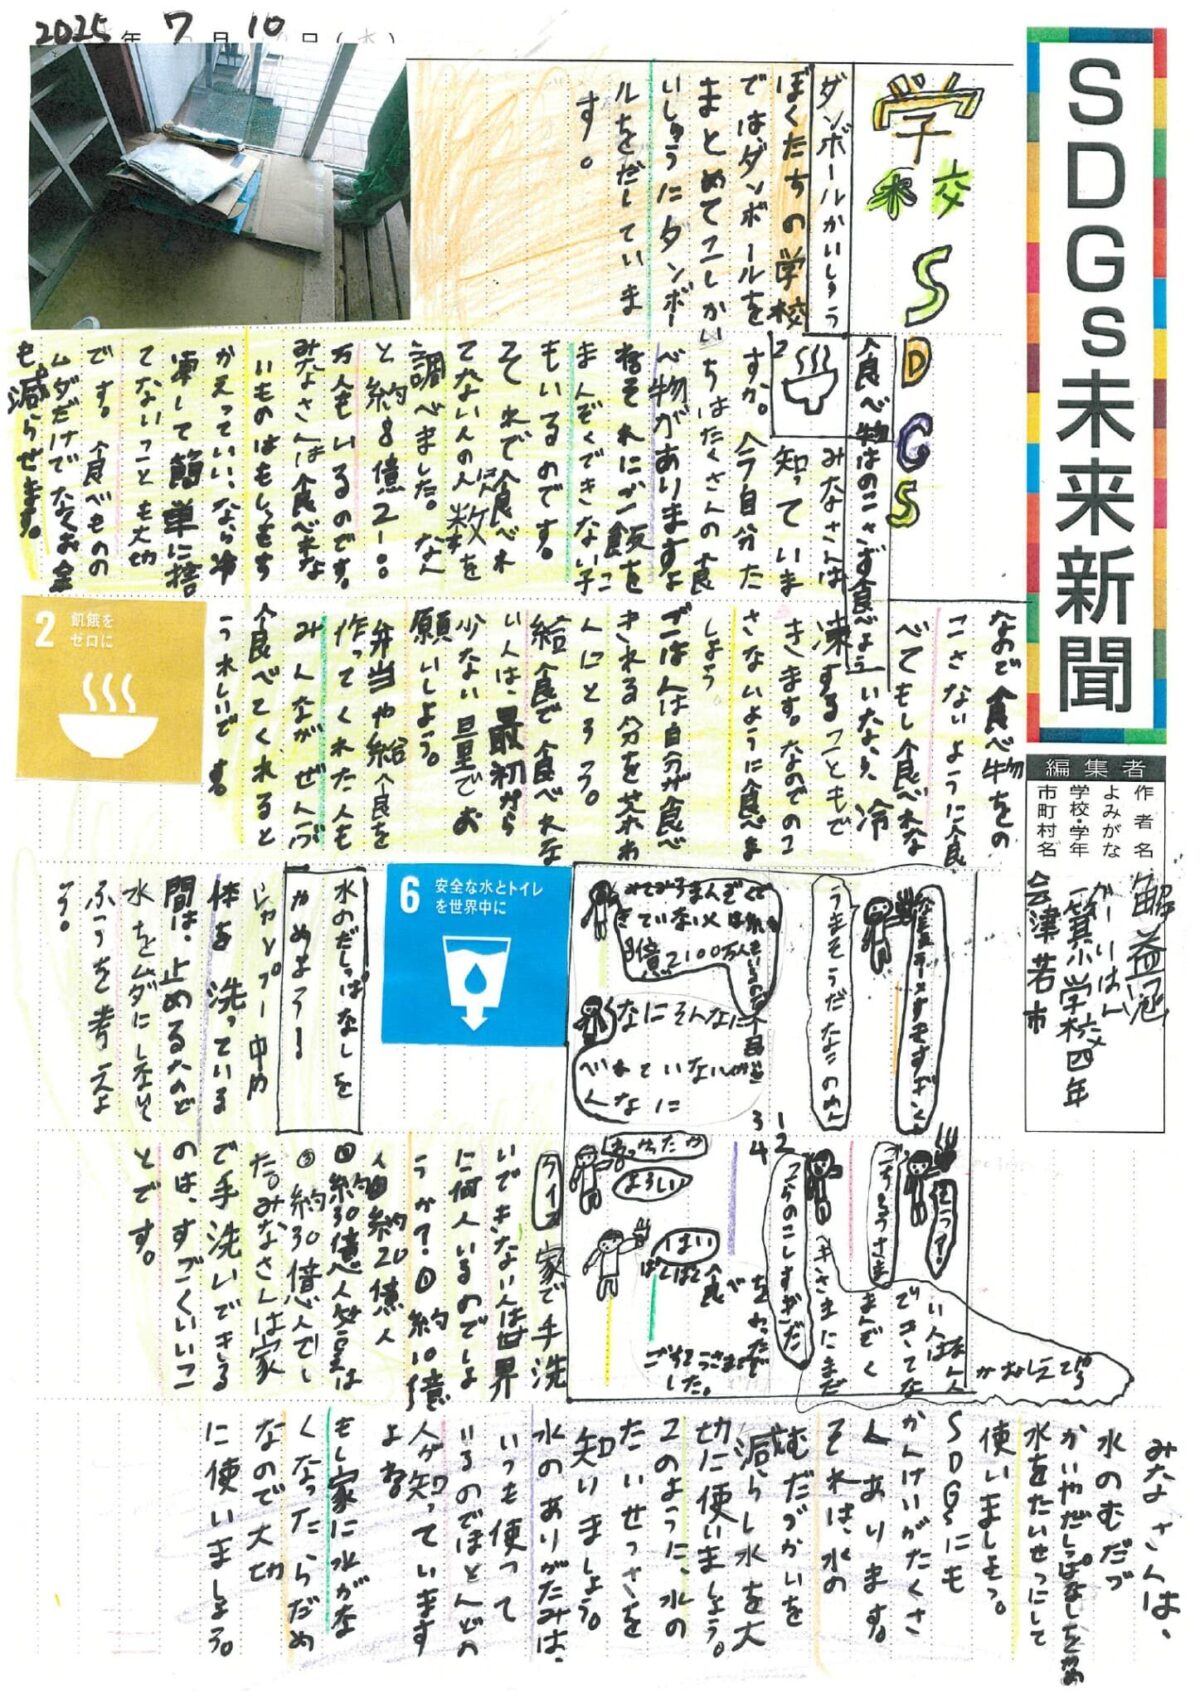 2025年7月10日(木)
SDGs未来新聞
編集者
作者名
よみがな
学校学年 一箕小学校 四年
市町村名 会津若市
学校SDGS
ダンボールかいしゅう
ぼくたちの学校
ではダンボールを
まとめて二しゅうかい
いしゅうにダンボー
ルをだしていま
す。
食べ物はのこさず食べよう
2
みなさんは
知っていま
すか。今自分た
ちはたくさんの食
べ物がありますよ
ねそれにご飯を
まんぞくできない子
もいるのです。
そこで食べれ
てない人の人数を
調べました。なん
と約8億2100
万人もいるのです。
みなさんは食べきな
いものはもしもち
かえっていいなら冷
凍して簡単に捨
てないことも大切
です。食べものの
ムダだけでなくお金
も減らせます。
なので食べ物をの
こさないように食
べてもし食べれな
いなら、冷
凍することもで
きます。なのでのこ
さないように食べま
しょう
ごはんは自分が食べ
きれる分を茶わ
んにとろう。
給食で食べれな
い人は、最初から
少ない量でお
願いしよう。
弁当や給食を
作ってくれた人も
みんながぜんぶ
食べてくれると
うれしいです。
2 飢餓を
ゼロに
6 安全な水とトイレ
を世界中に
うまそうだな
なにそんなに
べれていない
んなに
1
2
3
4
よろしい
はい
ぱくぱく食べ
ごちそうさまで
した。
水のだしっぱなしを
やめよう!
シャンプー中や
体を洗っている
間は、止めるなど
水をムダにしない
ふうを考えよ
う。
クイズ 家で手洗
いできない人は世界
に何人いるのでしょ
うか?①約10億
人 ②約20億人
③約30億人 答えは
③約30億人でし
た。みなさんは家
で手洗いできる
のは、すごくいいこ
とです。
みなさんは、
水のむだづ
かいやだしっぱなしをやめ
水をたいせつにして
使いましょう。
SDGsにも
かんけいがたくさ
んあります。
それは、水の
むだづかいを
減らし水を大
切に使いましょう。
このように、水の
たいせつさを
知りましょう。
水のありがたみは、
いつも使って
いるのでほとんどの
人が知っています
よね
もし家に水がな
くなったらだめ
なので大切
に使いましょう。